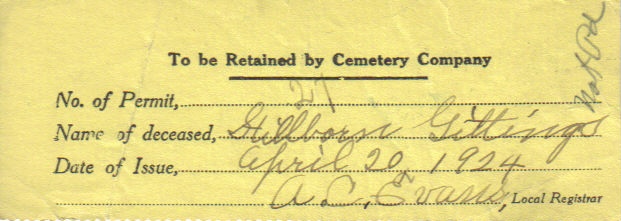 To be Retained by Cemetery Company
Not Pd
No. of Permit, 27
Name of deceased, Stillborn Gittings
Date of Issue, April 20, 1924
A. L. Evans, Local Registrar